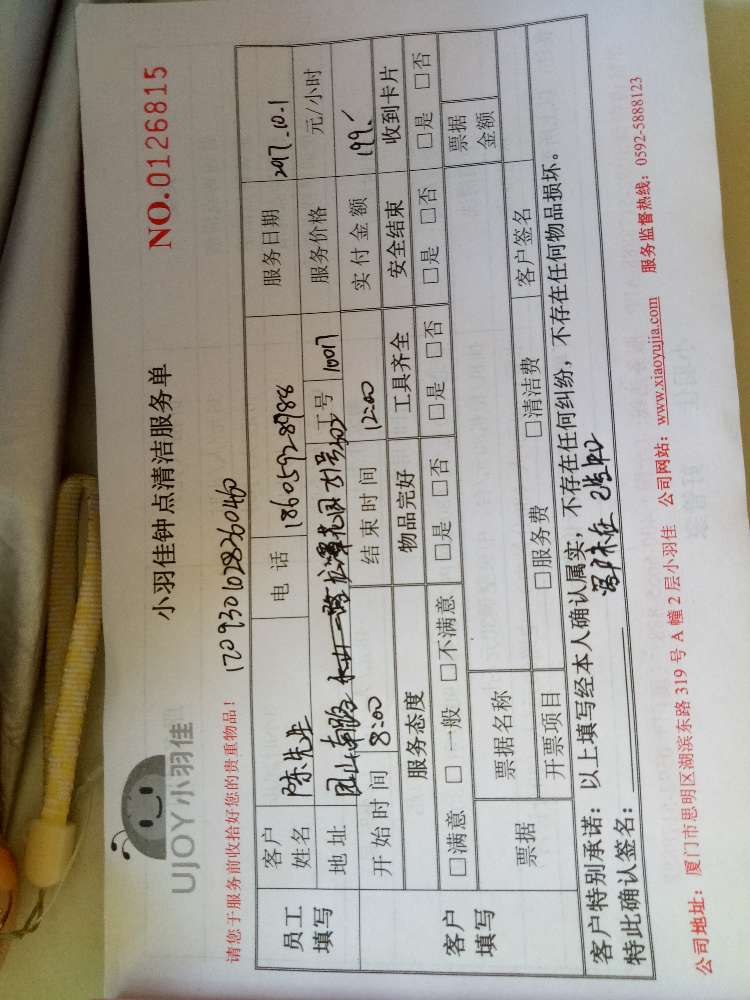 UJOY小羽佳
小羽佳钟点清洁服务单
NO.0126815
请您于服务前收拾好您的贵重物品!
1209301028260460
员工填写
客户姓名 陈先生 电话 18605928988 服务日期 2017.10.1
地址 工号 10017 服务价格 元/小时
开始时间 8:00 结束时间 12:00 实付金额 199
客户填写
服务态度 物品完好 工具齐全 安全结束 收到卡片
□满意 □一般 □不满意 □是 □否 □是 □否 □是 □否 □是 □否
票据 票据名称 票据金额
开票项目 □服务费 □清洁费 客户签名
客户特别承诺:以上填写经本人确认属实,不存在任何纠纷,不存在任何物品损坏。
特此确认签名:
公司地址:厦门市思明区湖滨东路319号A幢2层小羽佳 公司网站:www.xiaoyujia.com 服务监督热线:0592-5888123